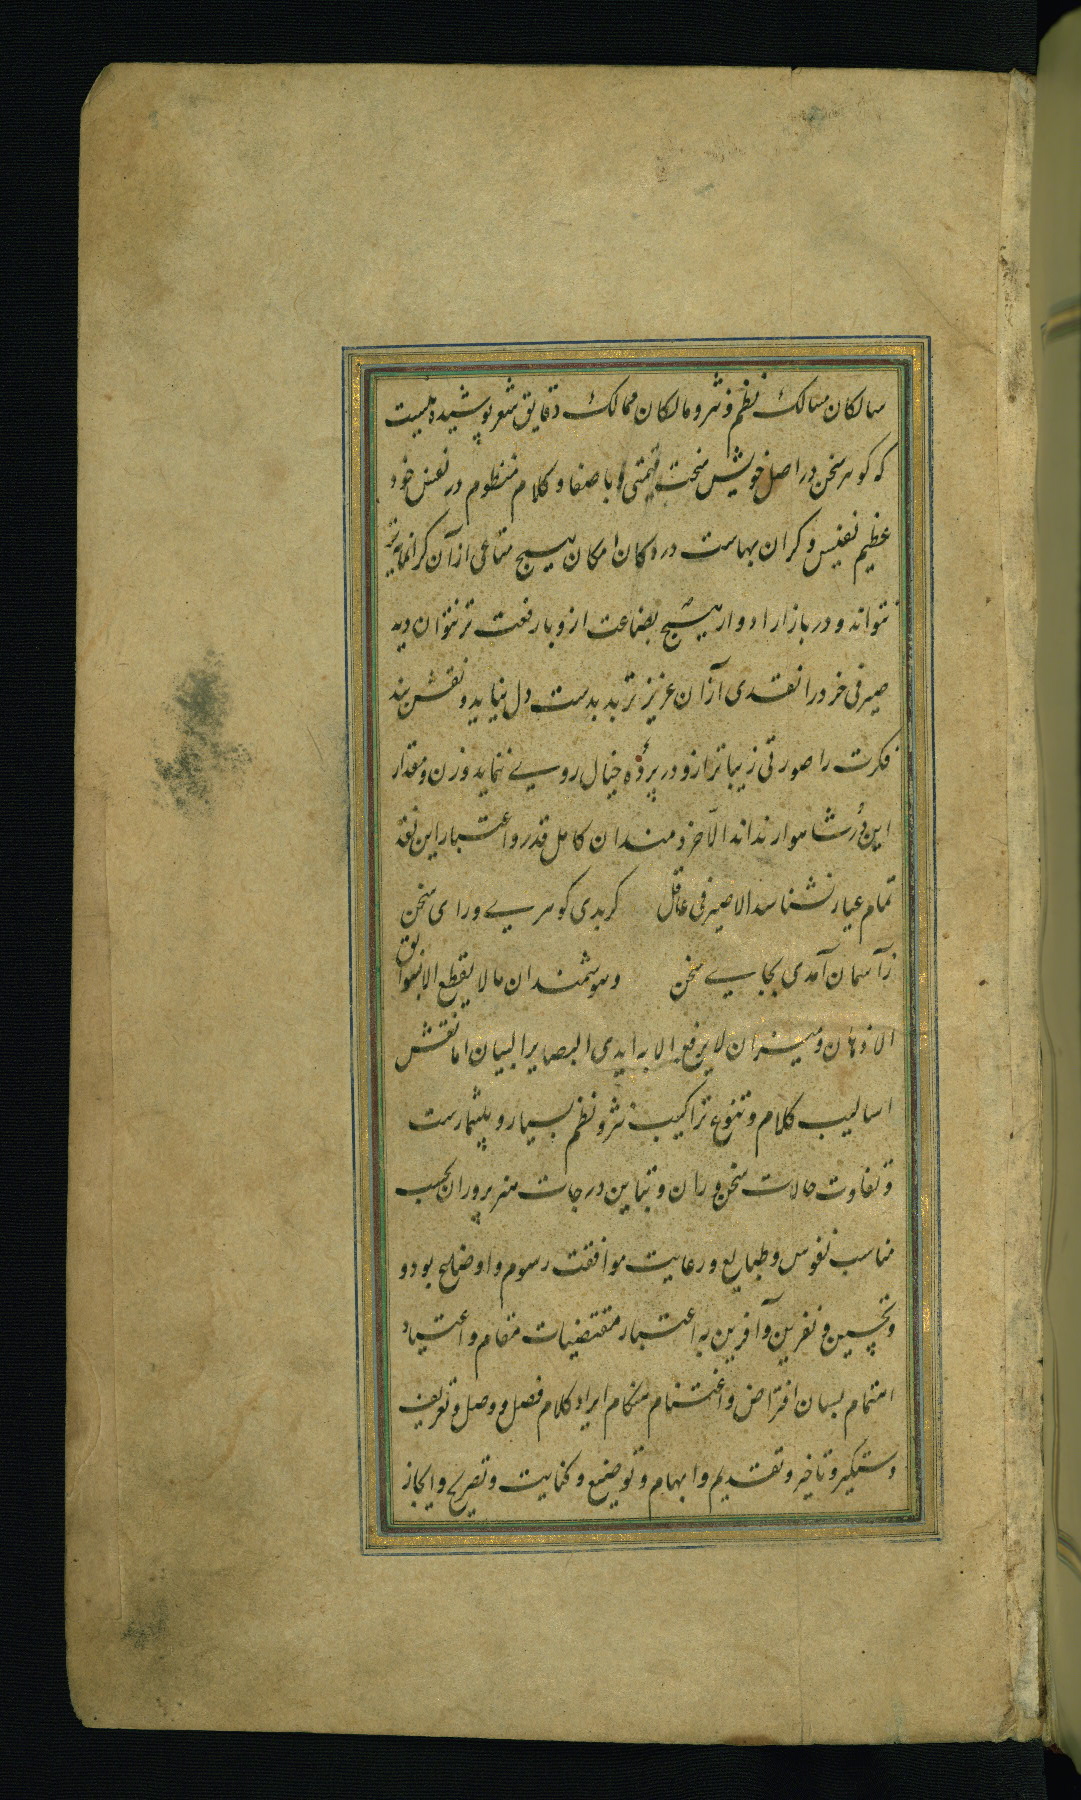 سالکان مسالک نظم و نثر و مالکان ممالک دقایق شعر پوشیده نیست
که کوهر سخن در اصل خویش سخت قیمتی و با صفا و کلام منظوم در نفس خود
عظیم نفیس و کران بهاست در دکان امکان هیچ متاعی از آن کرانمایه‌تر
نتواند و در بازار ادوار هیچ بضاعت ازو با رفعت تر نتوان دید
صیرفی خرد را نقدی ازان عزیز تر بدست دل نیاید و نقش بند
فکرت را صورتی زیباتر ازو در پردهٔ خیال روی ننماید وزن و مقدار
این دُر شاهوار نداند الا خردمندان کامل قدر و اعتبار این نقد
تمام عیار نشناسد الا صیرفی عاقل کر بدی کوهری ورای سخن
زآسمان آمدی بجای سخن و هوشمندان مالا یقطع الا بسوابق
الاذهان و میزان لا یرفع الا به ایدی البصایر البیان اما نقش
اسالیب کلام و تنوع تراکیب نثر و نظم بسیار و بیشمارست
و تفاوت حالات سخن وران و تباین درجات هنرپروران بحسب
مناسب نفوس و طبایع و رعایت موافقت رسوم و اوضاع بود و
و تحسین و نفرین و آفرین به اعتبار مقتضیات مقام و اعتیاد
اهتمام بسان افتراض و اغتنام هنکام ایراد کلام فصل و وصل و تعریف
و تنکیر و تاخیر و تقدیم و ابهام و توضیع و کنایت و تصریح و ایجاز